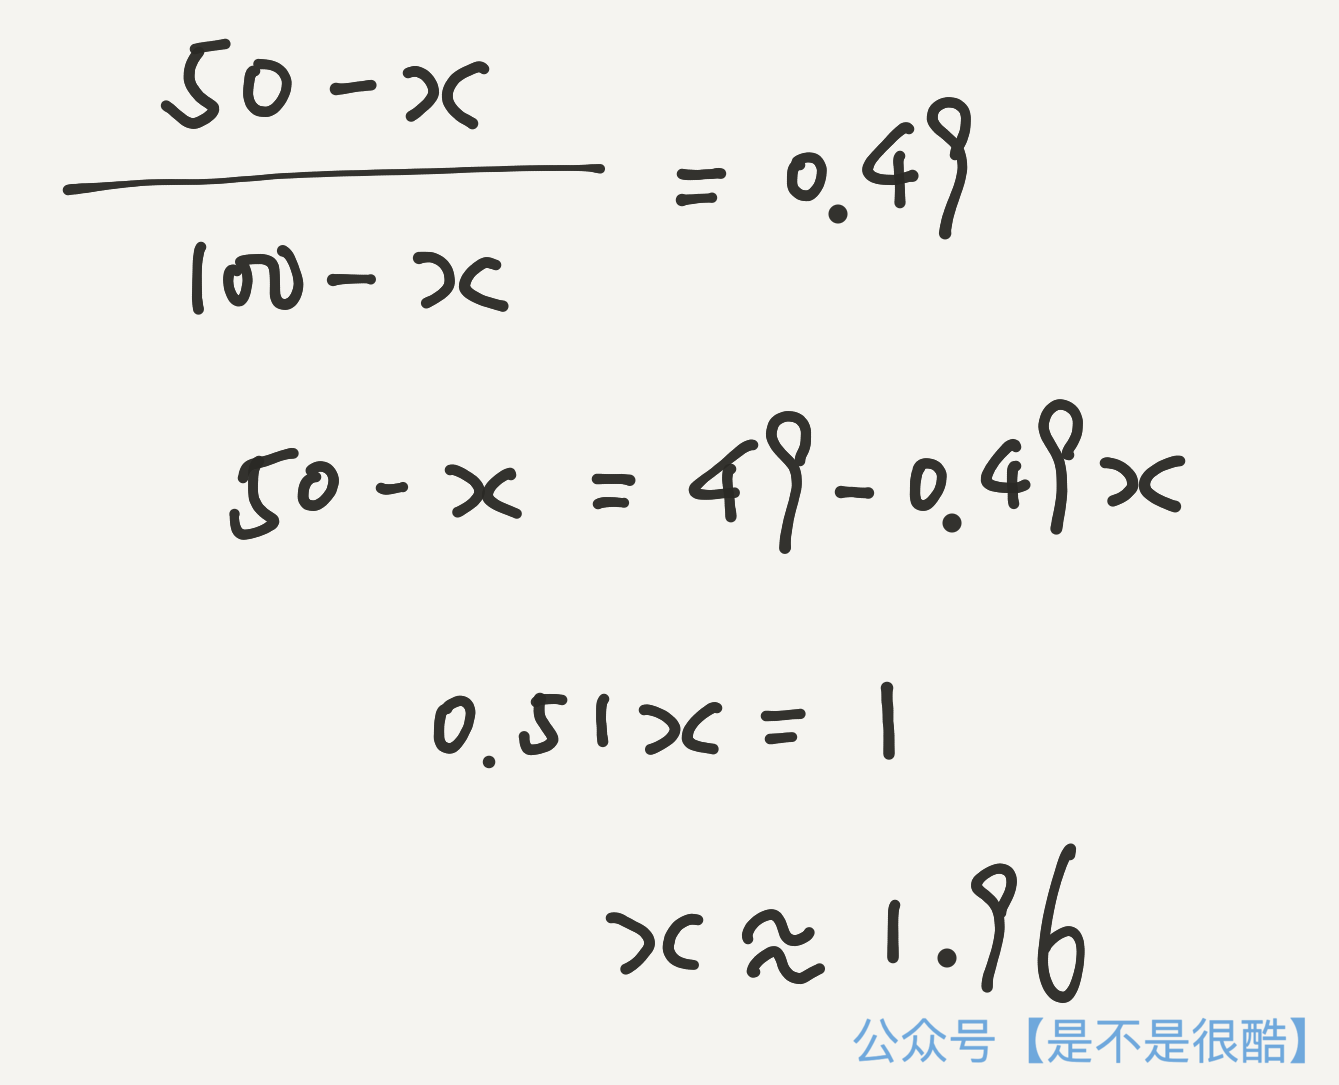 50 - x
100 - x
= 0.49
50 - x = 49 - 0.49x
0.51x = 1
x ≈ 1.96
公众号【是不是很酷】